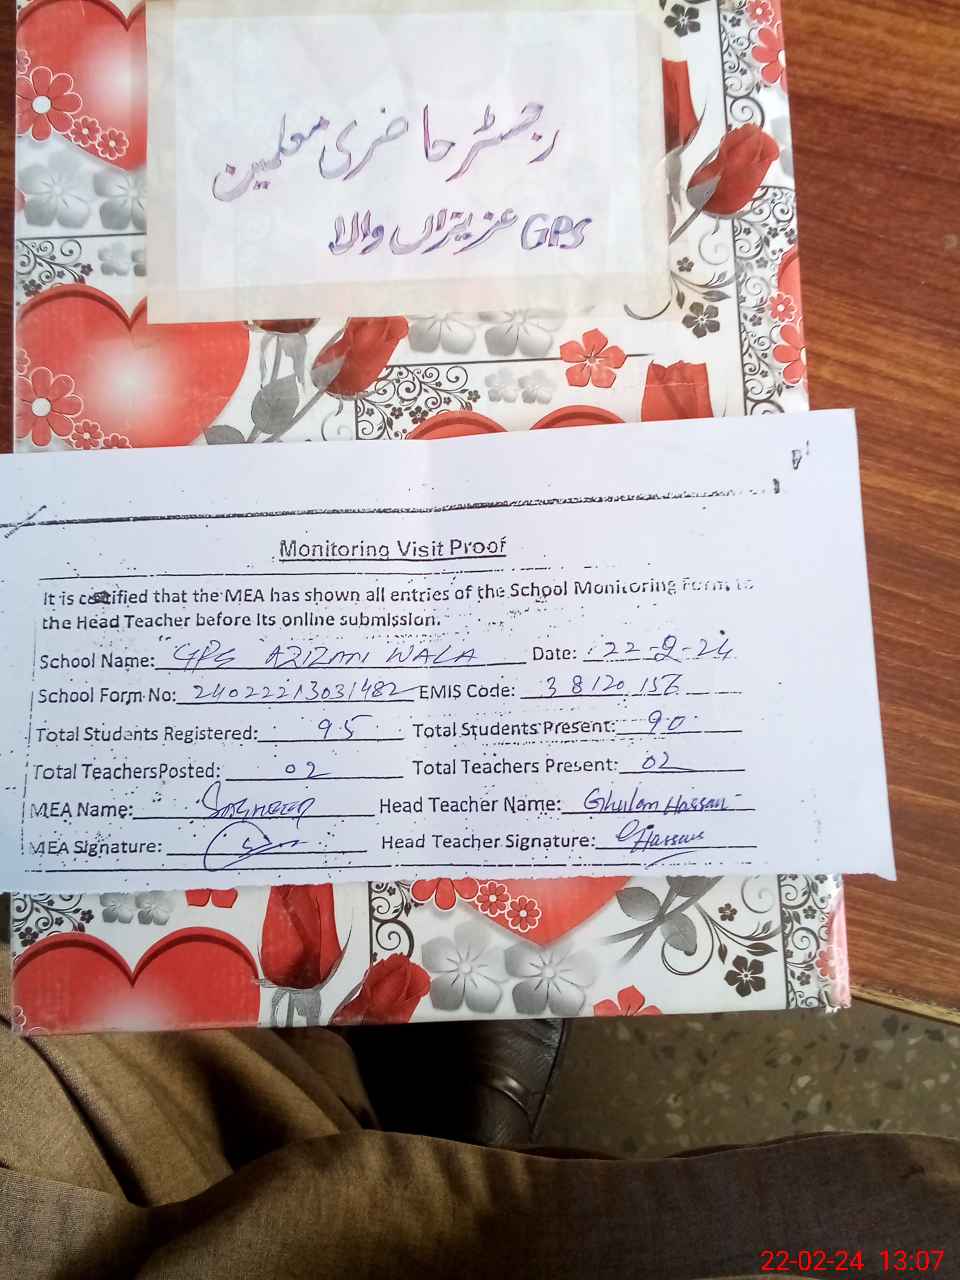 رجسٹر حاضری معلمین
GPS عزیزاں والا
Monitoring Visit Proof
It is certified that the MEA has shown all entries of the School Monitoring Form to
the Head Teacher before its online submission.
School Name: GPS AZIZAN WALA Date: 22-2-24
School Form No: 24022213031482 EMIS Code: 38120156
Total Students Registered: 95 Total Students Present: 90
Total Teachers Posted: 02 Total Teachers Present: 02
MEA Name: Head Teacher Name: Ghulam Hassan
MEA Signature: Head Teacher Signature: GHassan
22-02-24 13:07